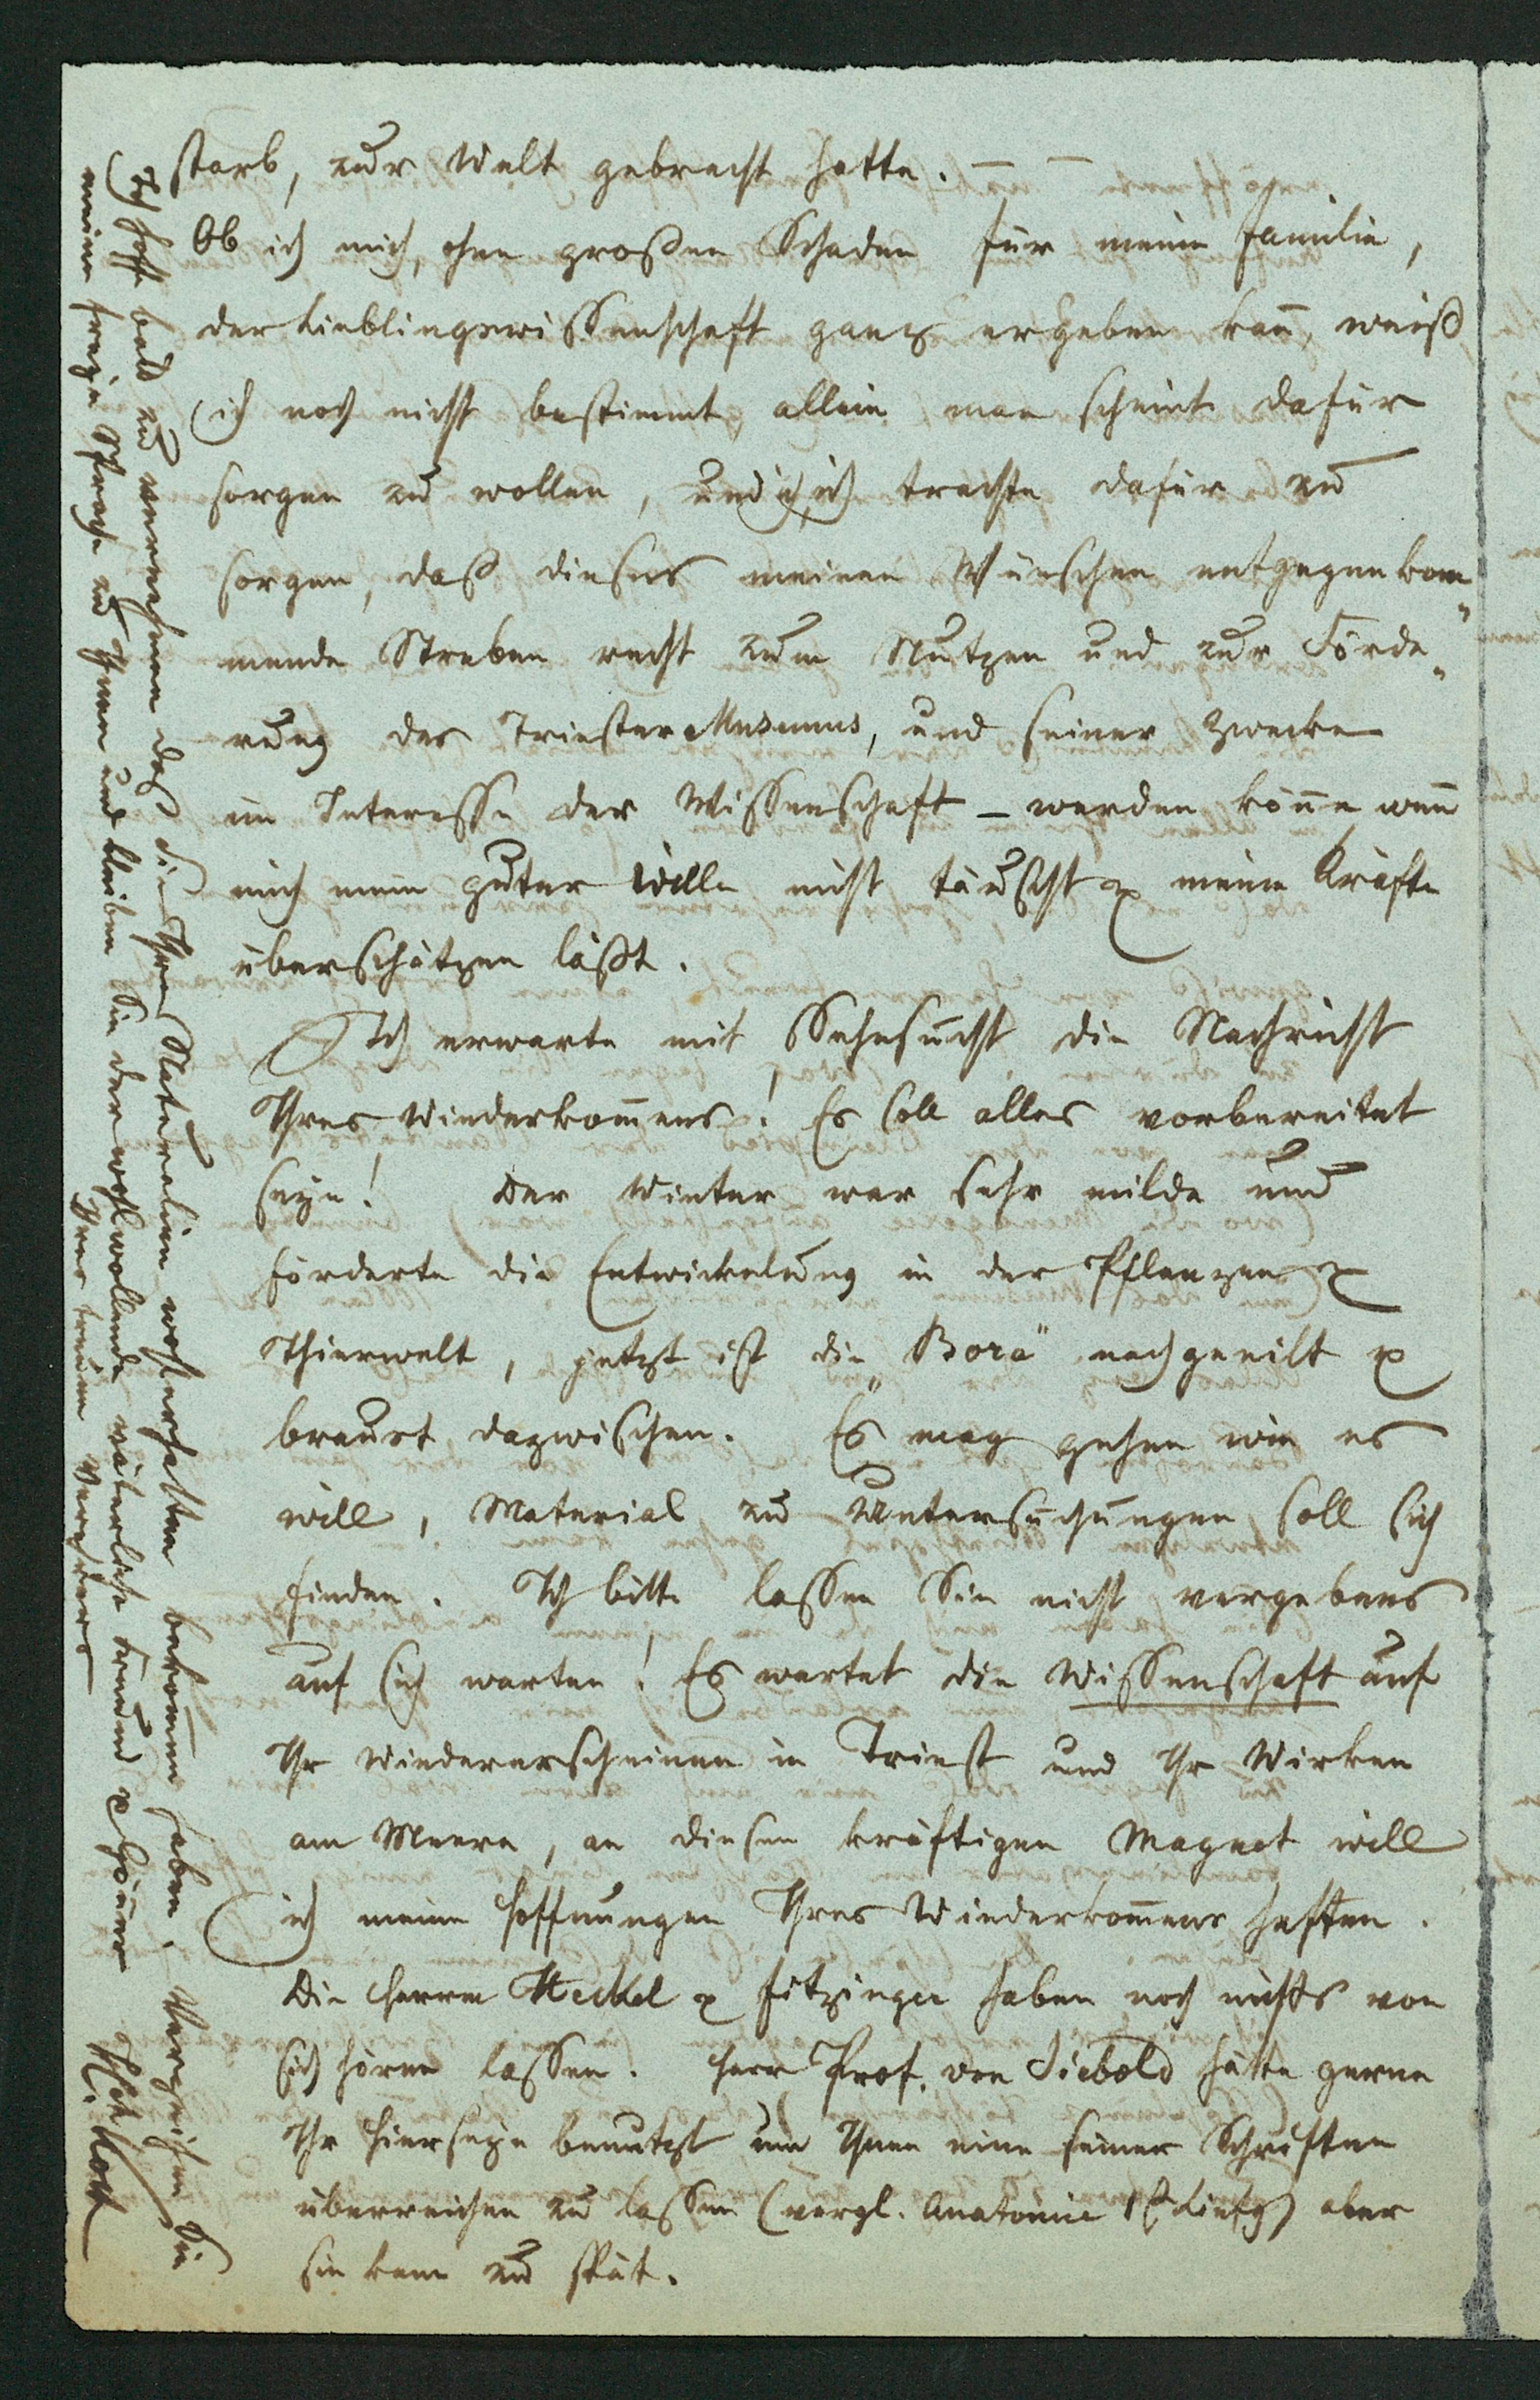 starb, zur Welt gebracht hatte. — —
Ob ich mich, ohne großen Schaden für meine Familie,
der Lieblingswissenschaft ganz ergeben kan̄, weiß
ich noch nicht bestimmt, allein man scheint dafür
sorgen zu wollen, und ich trachte dafür zu
sorgen, daß dieses meinen Wünschen entgegenkom„
mende Streben recht zum Nutzen und zur Förde„
rung des Triester Museums, und seiner Zwecke
im Interesse der Wissenschaft – werden kön̄e, wen̄
mich mein guter Wille nicht täuscht & meine Kräfte
überschätzen läßt.
Ich erwarte mit Sehnsucht die Nachricht
Ihres Wiederkom̄ens! Es soll alles vorbereitet
seyn! Der Winter war sehr milde und
förderte die Entwickelung in der Pflanzen &
Thierwelt, jetzt ist die „Bora“ nachgeeilt &
braust dazwischen. Es mag gehen wie es
will, Material zu Untersuchungen soll sich
finden. Ich bitte lassen Sie nicht vergebens
auf sich warten! Es wartet die Wissenschaft auf
Ihr Wiedererscheinen in Triest und Ihr Wirken
am Meere, an diesen kräftigen Magnet will
ich meine Hoffnungen Ihres Wiederkom̄ens heften.
Die Herren Heckel & Fitzinger haben noch nichts von
sich hören lassen. Herr Prof. von Siebold hätte gerne
Ihr Hierseyn benutzt um Ihnen eine seiner Schriften
überreichen zu lassen (vergl. Anatomie 1t Liefg) aber
sie kam zu spät.
Ich hoffe bald zu vernehmen daß Sie Ihre Naturalien wohlerhalten bekom̄en haben. Verzeihen Sie
meine freye Sprache zu Ihnen und bleiben Sie der wohlwollende väterliche Freund & Gön̄er
Ihres treuen Verehrers
H. Koch